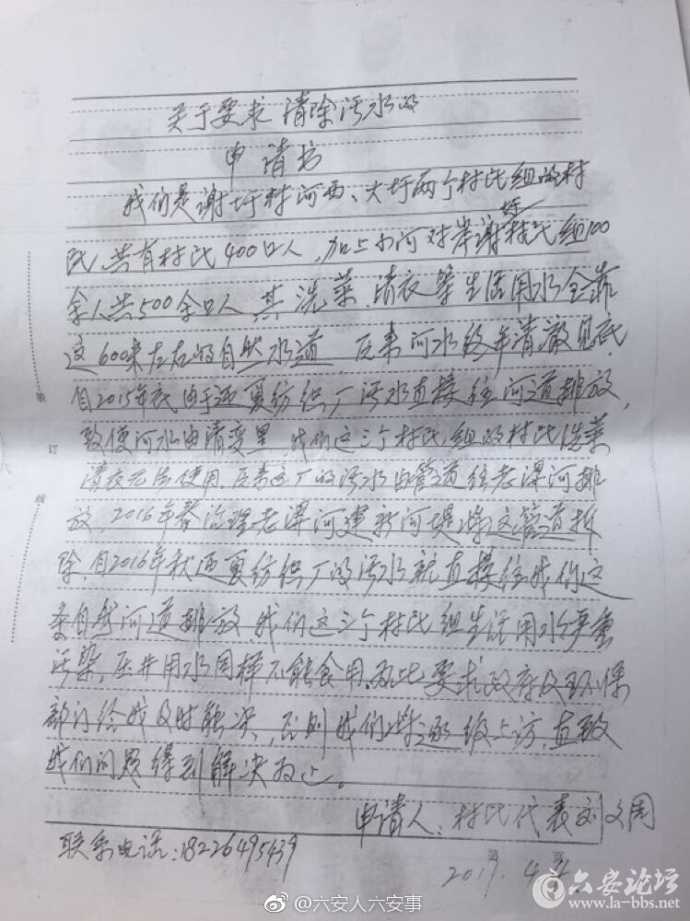 关于要求清除污水的
申请书
我们是谢圩村河西、大圩两个村民组的村
民,共有村民400口人,加上小河对岸谢圩村民组100
余人共500余口人,其洗菜清衣等生活用水全靠
这600米左右的自然水道,反来河水终年清澈见底,
自2015年底由于迎夏纺织厂污水直接往河道排放,
致使河水由清变黑,我们这三个村民组的村民洗菜
清衣无法使用,反来这厂的污水由管道往老淠河排
放,2016年春治理老淠河建新河堤将这管道拆
除,自2016年秋迎夏纺织厂的污水就直接往我们这
条自然河道排放,我们这三个村民组生活用水严重
污染,压井用水同样不能食用,为此要求政府及环保
部门给我及时解决,否则我们将逐级上访,直致
我们问题得到解决为止。
申请人:村民代表刘文周
联系电话:18226495439
2017.4.4
订
线
@六安人六安事
六安论坛
www.la-bbs.net